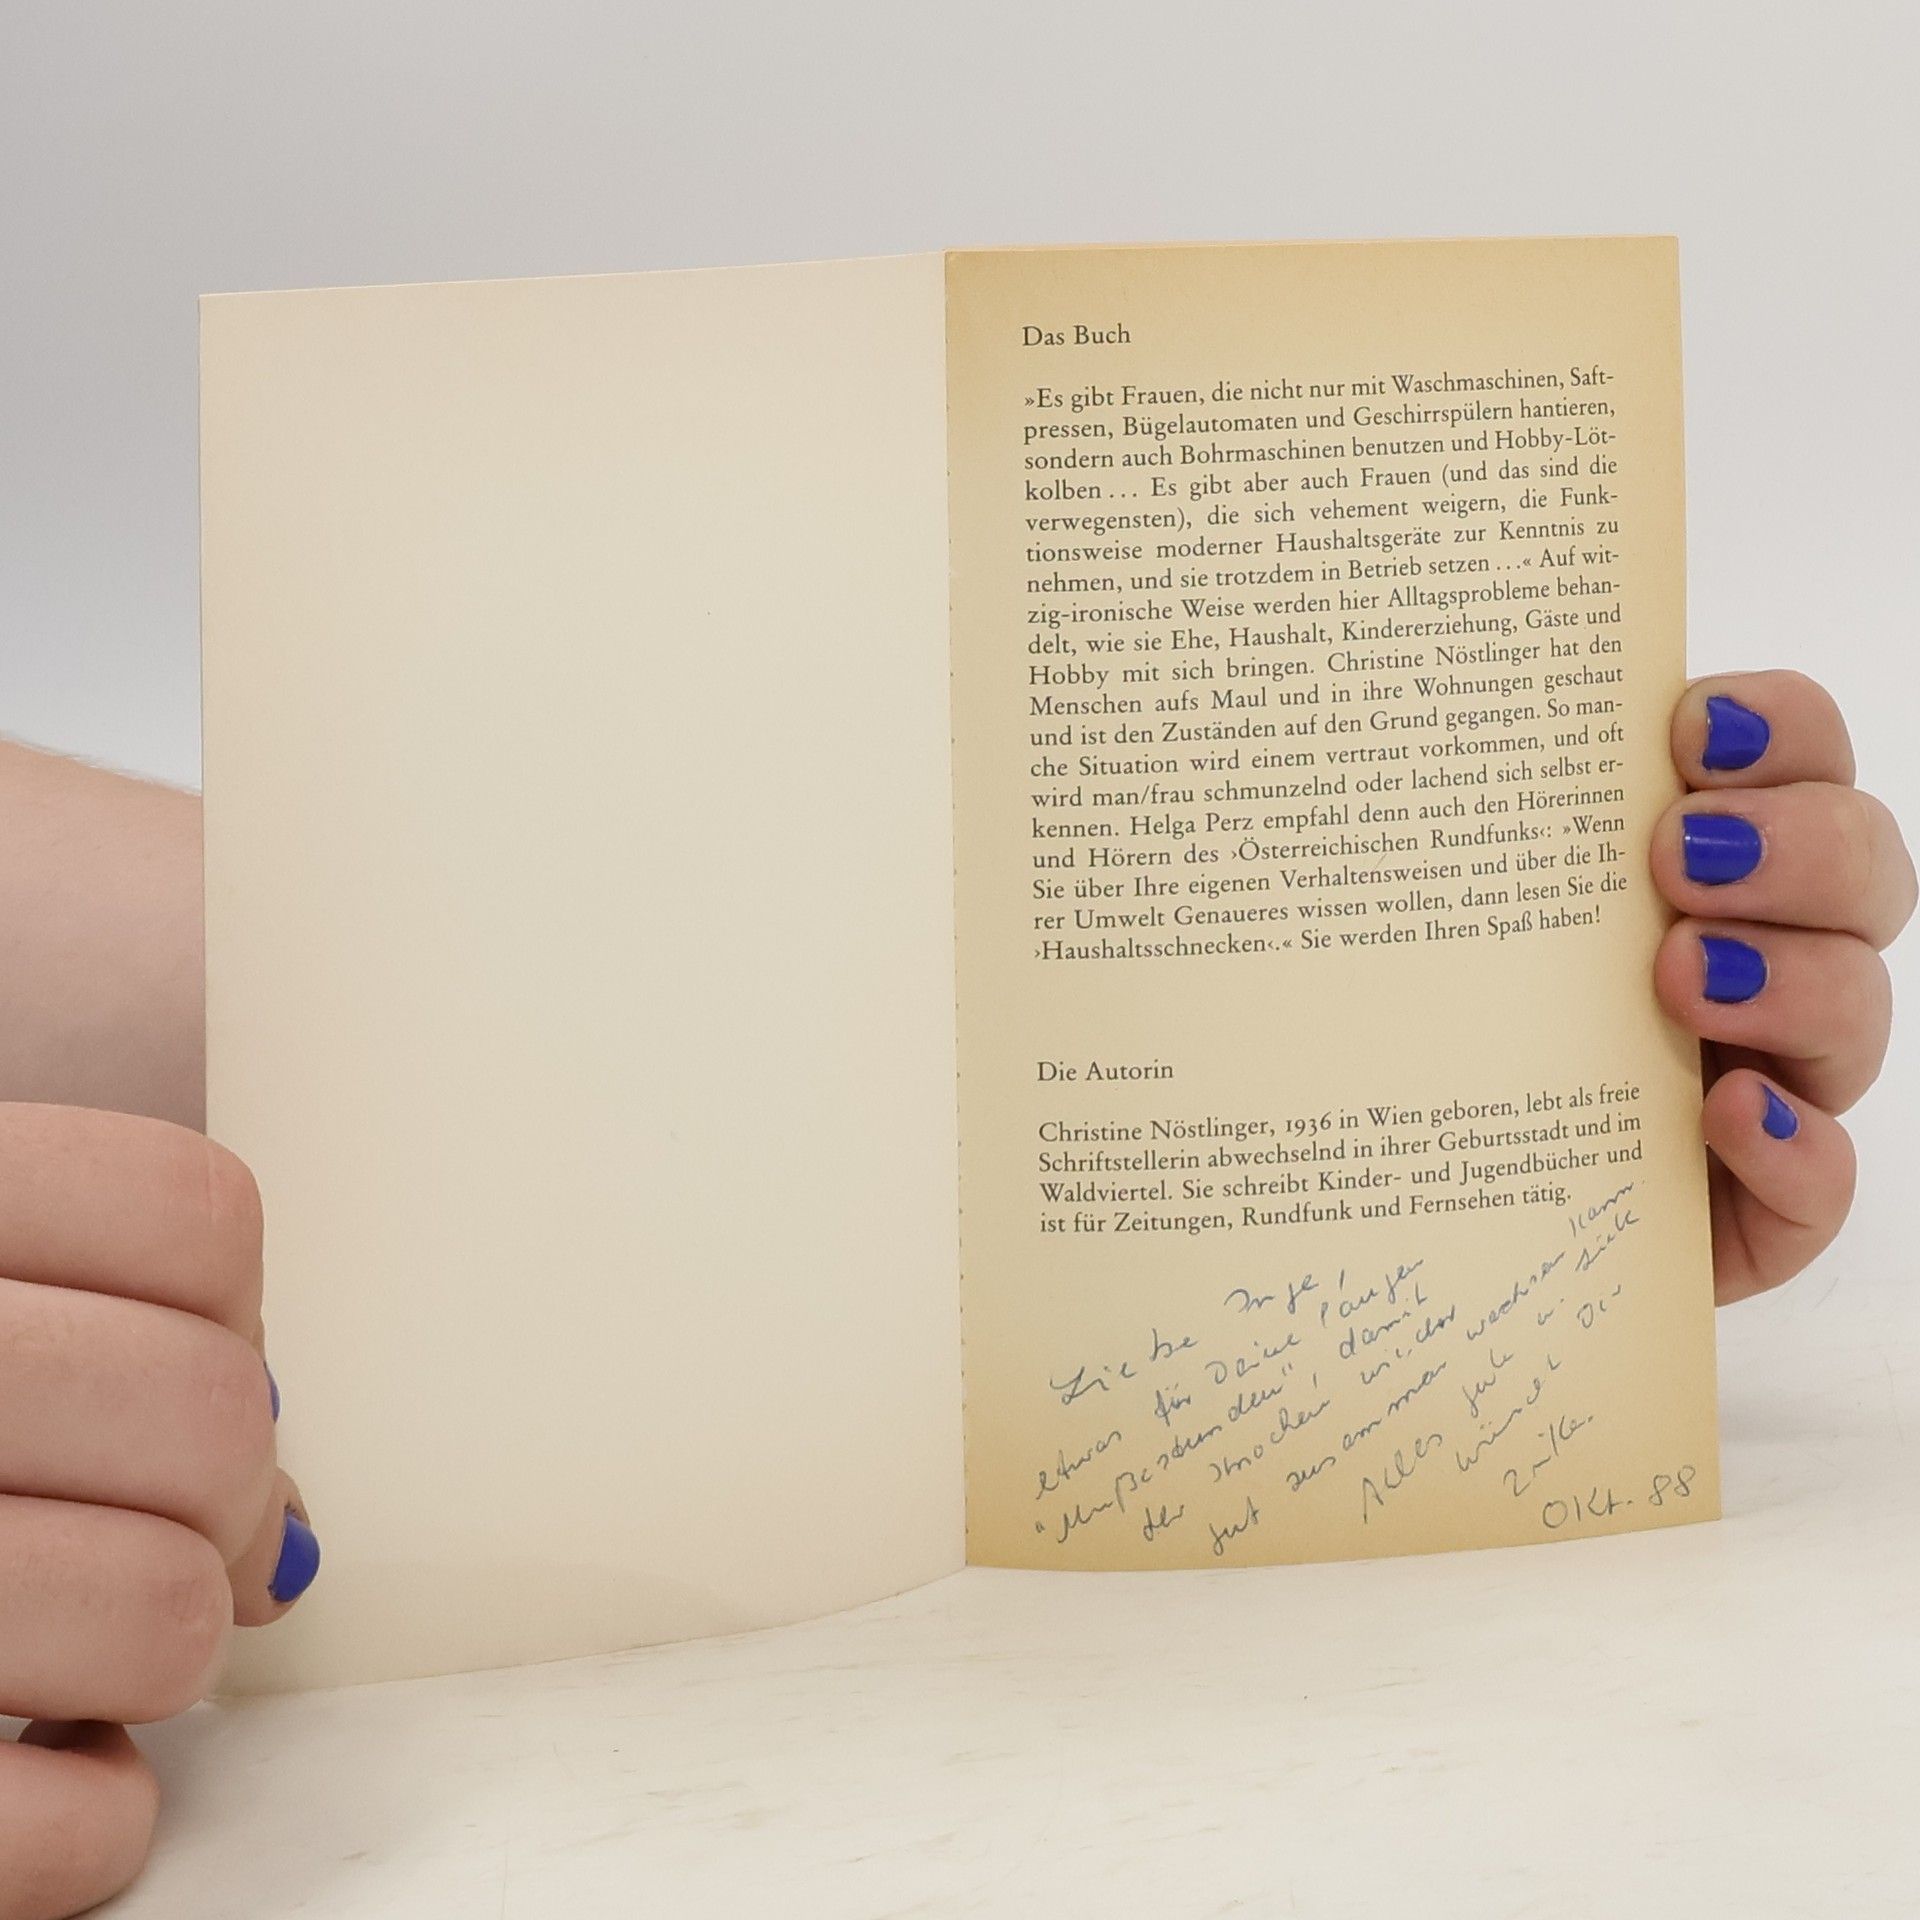 Das Buch
»Es gibt Frauen, die nicht nur mit Waschmaschinen, Saft-
pressen, Bügelautomaten und Geschirrspülern hantieren,
sondern auch Bohrmaschinen benutzen und Hobby-Löt-
kolben ... Es gibt aber auch Frauen (und das sind die
verwegensten), die sich vehement weigern, die Funk-
tionsweise moderner Haushaltsgeräte zur Kenntnis zu
nehmen, und sie trotzdem in Betrieb setzen ...« Auf wit-
zig-ironische Weise werden hier Alltagsprobleme behan-
delt, wie sie Ehe, Haushalt, Kindererziehung, Gäste und
Hobby mit sich bringen. Christine Nöstlinger hat den
Menschen aufs Maul und in ihre Wohnungen geschaut
und ist den Zuständen auf den Grund gegangen. So man-
che Situation wird einem vertraut vorkommen, und oft
wird man/frau schmunzelnd oder lachend sich selbst er-
kennen. Helga Perz empfahl denn auch den Hörerinnen
und Hörern des ›Österreichischen Rundfunks‹: »Wenn
Sie über Ihre eigenen Verhaltensweisen und über die Ih-
rer Umwelt Genaueres wissen wollen, dann lesen Sie die
›Haushaltsschnecken‹.« Sie werden Ihren Spaß haben!
Die Autorin
Christine Nöstlinger, 1936 in Wien geboren, lebt als freie
Schriftstellerin abwechselnd in ihrer Geburtsstadt und im
Waldviertel. Sie schreibt Kinder- und Jugendbücher und
ist für Zeitungen, Rundfunk und Fernsehen tätig.
Liebe Inge,
etwas für Deine langen
"Mußestunden", damit
der Knochen wieder
gut zusammen wachsen kann.
Alles Gute u.
wünscht Dir
Okt. 88